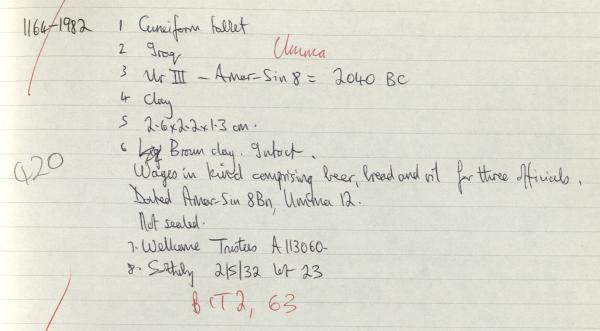 1164-1982 1 Cuneiform tablet
2 Iraq Umma
3 Ur III - Amar-Sin 8 = 2040 BC
4 Clay
5 2.6x2.2x1.3 cm.
6 Brown clay. Intact.
Wages in kind comprising beer, bread and oil for three officials.
420
Dated Amar-Sin 8Bn, Umma 12.
Not sealed.
7. Wellcome Trustees A113060.
8. Sotheby 2/5/32 lot 23
BCT2, 63